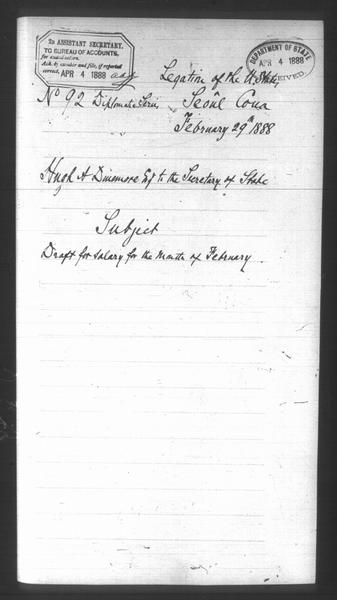 To ASSISTANT SECRETARY,
TO BUREAU OF ACCOUNTS,
for examination.
Ack. by number and file, if reported
correct. APR 4 1888
DEPARTMENT OF STATE
APR 4 1888
RECEIVED.
Legation of the U. States,
No 92 Diplomatic Series, Seoûl Corea
February 29th 1888
Hugh A Dinsmore Esq to the Secretary of State
Subject
Draft for salary for the Month of February.